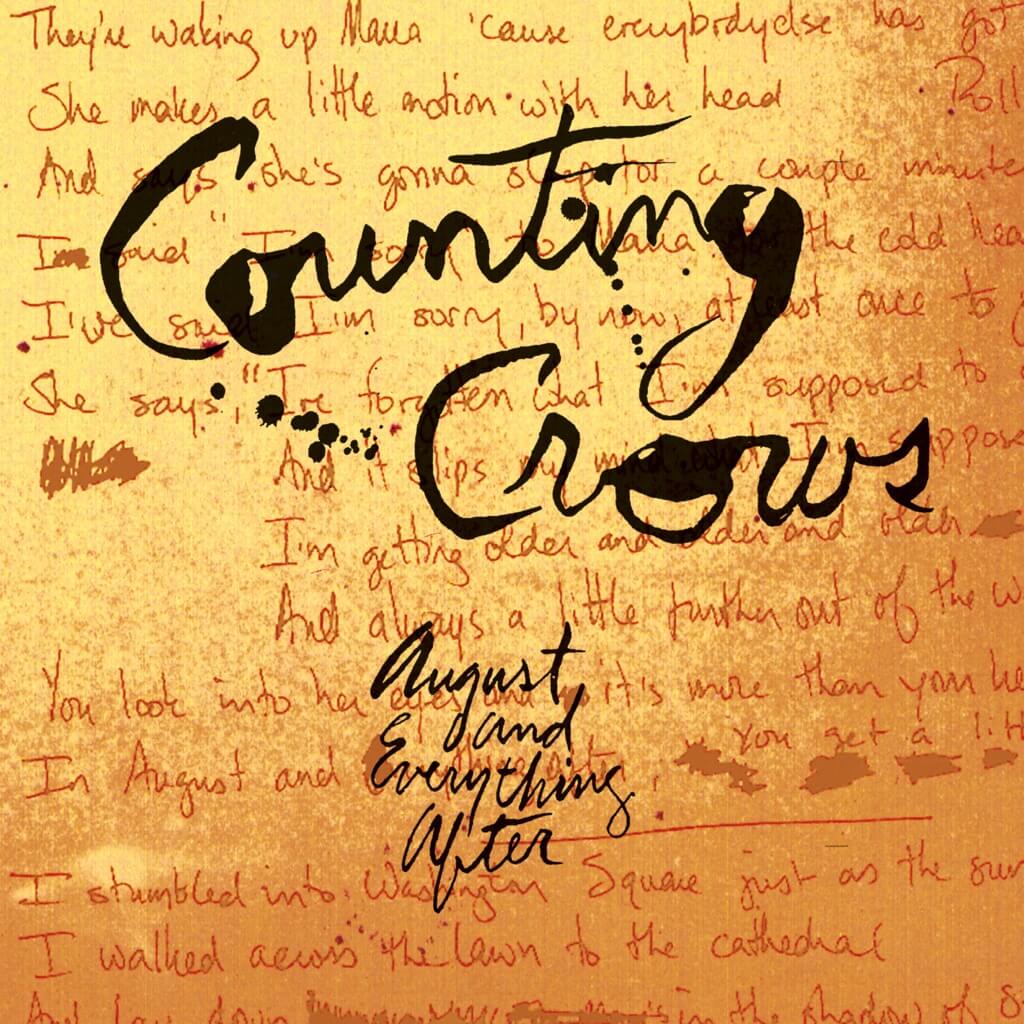 They're waking up Maria 'cause everybodyelse has got
She makes a little motion with her head Roll
And says she's gonna sleep for a couple minute
I'm said "I'm sorry" to Maria for the cold hea
I've said I'm sorry, by now, at least once to
She says, "I've forgotten what I'm supposed to
And it slips my mind what I'm suppose
I'm getting older and older and older
And always a little further out of the w
You look into her eyes and it's more than your he
In August and You get a litt
I stumbled into Washington Square just as the sun
I walked across the lawn to the cathedral
And lay down in the shadow of S
Counting
Crows
August
and
Everything
After